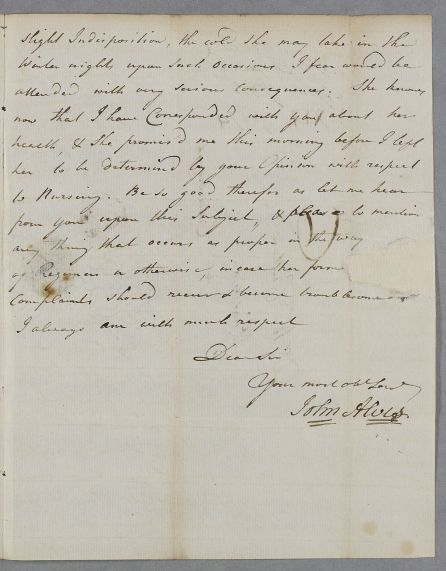 slight Indisposition, the cold she may take in the
Winter nights upon such occasions I fear would be
attended with very serious consequences. She knows
now that I have Corresponded with you about her
health, & she promis'd me this morning before I left
her to be determin'd by your Opinion with respect
to Nursing. Be so good therefor as let me hear
from you upon this Subject, & please to mention
any thing that occurs as proper in the way
of Regimen or otherwise, in case her form
Complaints should recur & become troublesome
I always am with much respect
Dear Sir
Your most Obt Serv
John